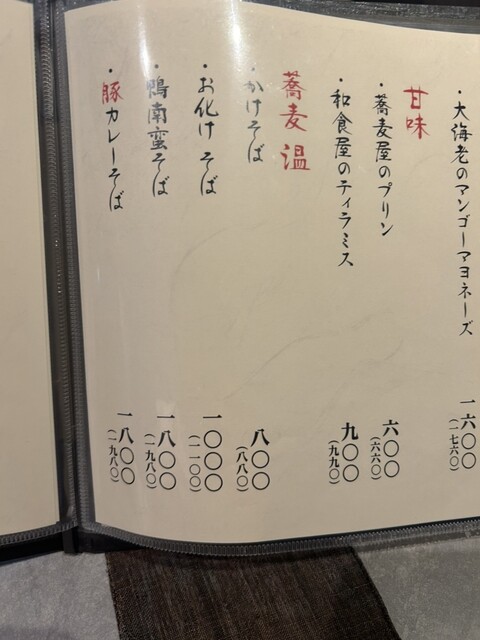 ・大海老のマンゴーマヨネーズ 一六〇〇
(一七六〇)
甘味
・蕎麦屋のプリン 六〇〇
(六六〇)
・和食屋のティラミス 九〇〇
(九九〇)
蕎麦 温
・かけそば 八〇〇
(八八〇)
・お化けそば 一〇〇〇
(一一〇〇)
・鴨南蛮そば 一八〇〇
(一九八〇)
・豚カレーそば 一八〇〇
(一九八〇)